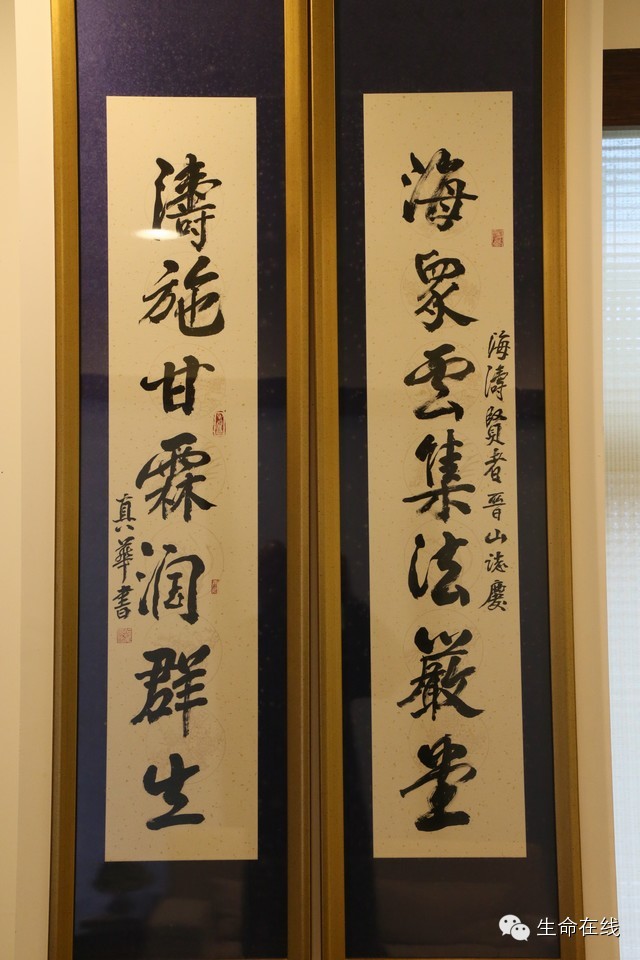 海眾雲集法嚴堂
海濤賢者晉山誌慶
濤施甘霖潤群生
真華書
生命在线